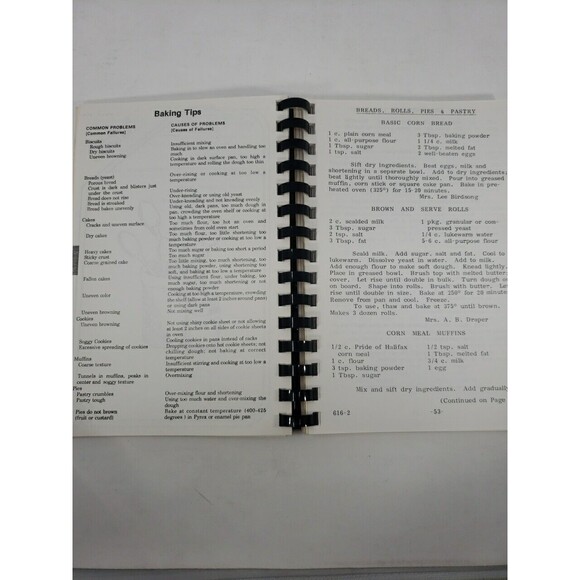 Baking Tips
COMMON PROBLEMS
(Common Failures)
CAUSES OF PROBLEMS
(Causes of Failures)
Biscuits
Rough biscuits
Insufficient mixing
Dry biscuits
Baking in too slow an oven and handling too much
Uneven browning
Cooking in dark surface pan, too high a temperature and rolling the dough too thin
Breads (yeast)
Porous bread
Over-rising or cooking at too low a temperature
Crust is dark and blisters just under the crust
Under-rising
Bread does not rise
Over-kneading or using old yeast
Bread is streaked
Under-kneading and not kneading evenly
Bread bakes unevenly
Using old, dark pans, too much dough in pan, crowding the oven shelf or cooking at too high a temperature
Cakes
Cracks and uneven surface
Too much flour, too hot an oven and sometimes from cold oven start
Dry cakes
Too much flour, too little shortening, too much baking powder or cooking at too low a temperature
Heavy cakes
Too much sugar or baking too short a period
Sticky crust
Too much sugar
Coarse grained cake
Too little mixing, too much shortening, too much baking powder, using shortening too soft, and baking at too low a temperature
Fallen cakes
Using insufficient flour, under baking, too much sugar, too much shortening or not enough baking powder
Uneven color
Cooking at too high a temperature, crowding the shelf (allow at least 2 inches around pans) or using dark pans
Uneven browning
Not mixing well
Cookies
Uneven browning
Not using shiny cookie sheet or not allowing at least 2 inches on all sides of cookie sheets in oven
Soggy Cookies
Cooling cookies in pans instead of racks
Excessive spreading of cookies
Dropping cookies onto hot cookie sheets; not chilling dough; not baking at correct temperature
Muffins
Coarse texture
Insufficient stirring and cooking at too low a temperature
Tunnels in muffins, peaks in center and soggy texture
Overmixing
Pies
Pastry crumbles
Over-mixing flour and shortening
Pastry tough
Using too much water and over-mixing the dough
Pies do not brown
(fruit or custard)
Bake at constant temperature (400-425 degrees) in Pyrex or enamel pie pan
BREADS, ROLLS, PIES & PASTRY
BASIC CORN BREAD
1 c. plain corn meal
1 c. all-purpose flour
1 Tbsp. sugar
1 tsp. salt
3 Tbsp. baking powder
1 1/4 c. milk
2 Tbsp. melted fat
2 well-beaten eggs
Sift dry ingredients. Beat eggs, milk and
shortening in a separate bowl. Add to dry ingredients,
beat lightly until thoroughly mixed. Pour into greased
muffin, corn stick or square cake pan. Bake in pre-
heated oven (325°) for 15-20 minutes.
Mrs. Lee Birdsong
BROWN AND SERVE ROLLS
2 c. scalded milk
3 Tbsp. sugar
2 tsp. salt
3 Tbsp. fat
1 pkg. granular or com-
pressed yeast
1/4 c. lukewarm water
5-6 c. all-purpose flour
Scald milk. Add sugar, salt and fat. Cool to
lukewarm. Dissolve yeast in water. Add to milk.
Add enough flour to make soft dough. Knead lightly.
Place in greased bowl. Brush top with melted butter,
cover. Let rise until double in bulk. Turn dough
on board. Shape into rolls. Brush with butter. Let
rise until double in size. Bake at 250° for 20 minutes
Remove from pan and cool. Freeze.
TO USE: Thaw and bake at 375° until brown.
Makes 3 dozen rolls.
Mrs. A. B. Draper
CORN MEAL MUFFINS
1/2 c. Pride of Halifax
corn meal
1 c. flour
3 tsp. baking powder
1 Tbsp. sugar
1/2 tsp. salt
1 Tbsp. melted fat
3/4 c. milk
1 egg
Mix and sift dry ingredients. Add gradually
(Continued on Page
616-2
-53-